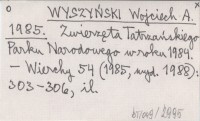 WYSZYŃSKI Wojciech A.
1985. Zwierzęta Tatrzańskiego
Parku Narodowego w roku 1984.
– Wierchy 54 (1985, wyd. 1988):
303-306, il.